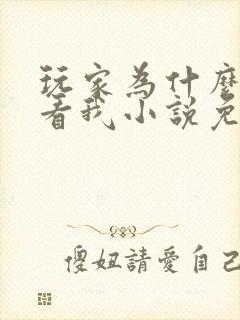 玩家為什麼
看我小說免
傻妞請愛自己